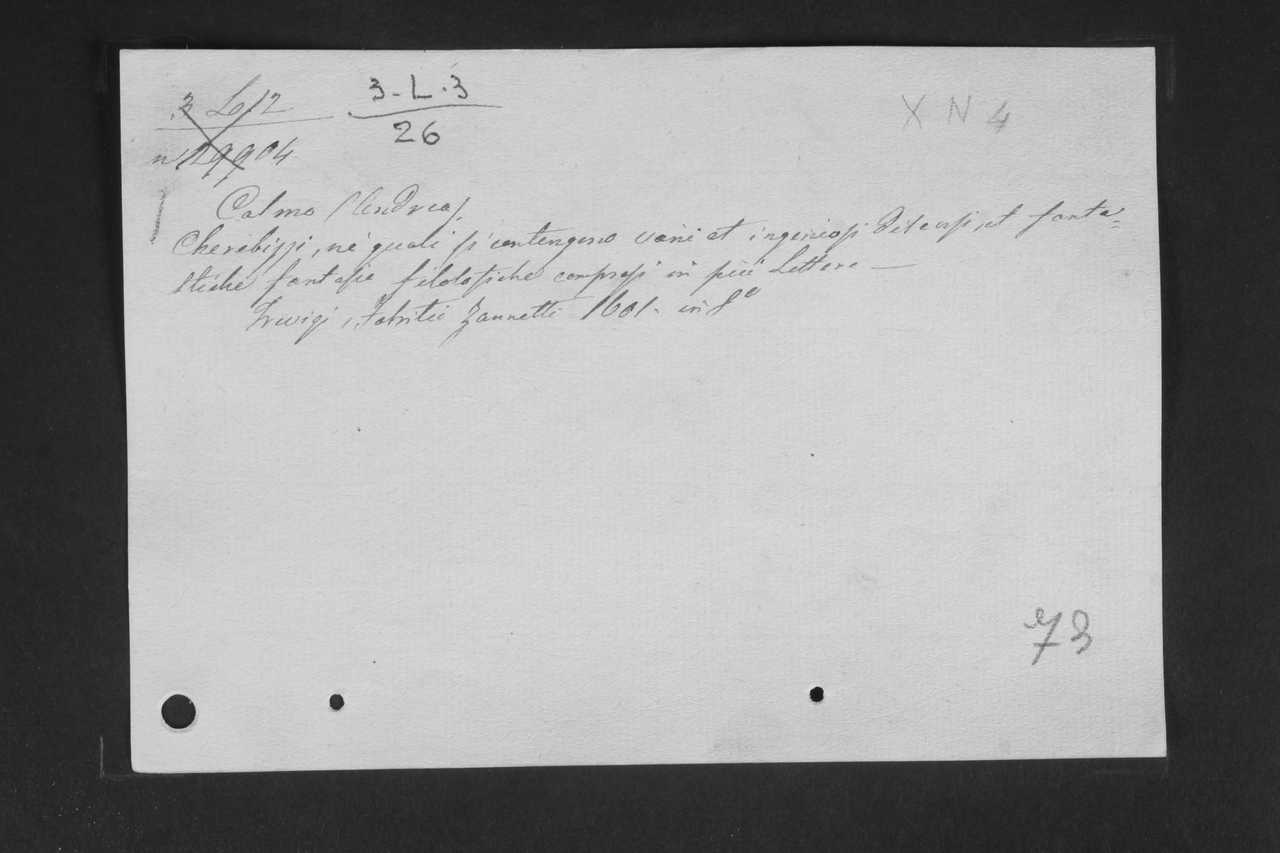 3 L 12
3-L.3
26
X N 4
n 129904
Calmo (Andrea).
Cherebizzi, ne' quali si contengono varii et ingeniosi discorsi, et fanta=
stiche fantasie filosofiche compresi in più Lettere —
Trevigi, Fabritio Zannetti 1601. in 8°
73